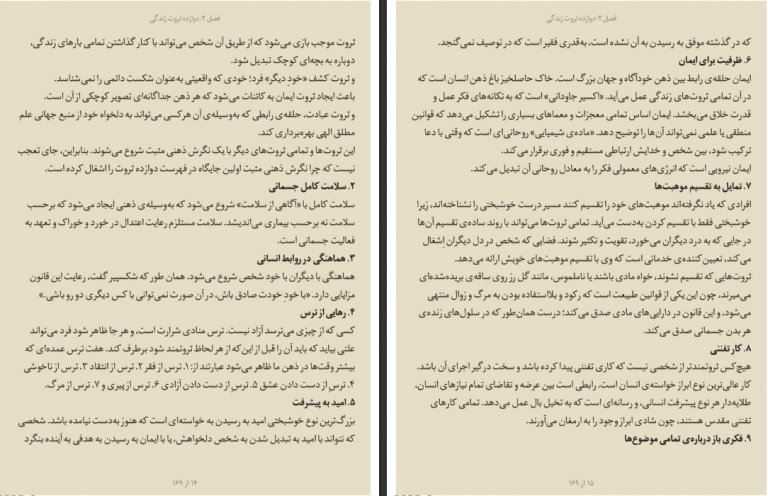 فصل ۲: دوازده ثروت زندگی
ثروت موجب بازی می‌شود که از طریق آن شخص می‌تواند با کنار گذاشتن تمامی بارهای زندگی،
دوباره به بچه‌ای کوچک تبدیل شود.
و ثروت کشف «خودِ دیگر» فرد؛ خودی که واقعیتی به‌عنوان شکست دائمی را نمی‌شناسد.
باعث ایجاد ثروت ایمان به کائنات می‌شود که هر ذهن جداگانه‌ای تصویر کوچکی از آن است.
و ثروت عبادت، حلقه‌ی رابطی که به‌وسیله‌ی آن هرکسی می‌تواند به دلخواه خود از منبع جهانی علم
مطلق الهی بهره‌برداری کند.
این ثروت‌ها و تمامی ثروت‌های دیگر با یک نگرش ذهنی مثبت شروع می‌شوند. بنابراین، جای تعجب
نیست که چرا نگرش ذهنی مثبت اولین جایگاه در فهرست دوازده ثروت را اشغال کرده است.
۲. سلامت کامل جسمانی
سلامت کامل با «آگاهی از سلامت» شروع می‌شود که به‌وسیله‌ی ذهنی ایجاد می‌شود که برحسب
سلامت نه برحسب بیماری می‌اندیشد. سلامت مستلزم رعایت اعتدال در خورد و خوراک و تعهد به
فعالیت جسمانی است.
۳. هماهنگی در روابط انسانی
هماهنگی با دیگران با خود شخص شروع می‌شود. همان طور که شکسپیر گفت، رعایت این قانون
مزایایی دارد. «با خودِ خودت صادق باش، در آن صورت نمی‌توانی با کس دیگری دو رو باشی.»
۴. رهایی از ترس
کسی که از چیزی می‌ترسد آزاد نیست. ترس منادی شرارت است، و هر جا ظاهر شود فرد می‌تواند
علتی بیابد که باید آن را قبل از این‌که از هر لحاظ ثروتمند شود برطرف کند. هفت ترس عمده‌ای که
بیشتر وقت‌ها در ذهن ما ظاهر می‌شود عبارتند از: ۱. ترس از فقر ۲. ترس از انتقاد ۳. ترس از ناخوشی
۴. ترس از دست دادن عشق ۵. ترس از دست دادن آزادی ۶. ترس از پیری و ۷. ترس از مرگ.
۵. امید به پیشرفت
بزرگ‌ترین نوع خوشبختی امید به رسیدن به خواسته‌ای است که هنوز به‌دست نیامده باشد. شخصی
که نتواند با امید به تبدیل شدن به شخص دلخواهش، یا با ایمان به رسیدن به هدفی به آینده بنگرد
۱۴ از ۱۶۹
فصل ۲: دوازده ثروت زندگی
که در گذشته موفق به رسیدن به آن نشده است، به‌قدری فقیر است که در توصیف نمی‌گنجد.
۶. ظرفیت برای ایمان
ایمان حلقه‌ی رابط بین ذهن خودآگاه و جهان بزرگ است. خاک حاصلخیز باغ ذهن انسان است که
در آن تمامی ثروت‌های زندگی عمل می‌آید. «اکسیر جاودانی» است که به تکانه‌های فکر عمل و
قدرت خلاق می‌بخشد. ایمان اساس تمامی معجزات و معماهای بسیاری را تشکیل می‌دهد که قوانین
منطقی یا علمی نمی‌تواند آن‌ها را توضیح دهد. «ماده‌ی شیمیایی» روحانی‌ای است که وقتی با دعا
ترکیب شود، بین شخص و خدایش ارتباطی مستقیم و فوری برقرار می‌کند.
ایمان نیرویی است که انرژی‌های معمولی فکر را به معادل روحانی آن تبدیل می‌کند.
۷. تمایل به تقسیم موهبت‌ها
افرادی که یاد نگرفته‌اند موهبت‌های خود را تقسیم کنند مسیر درست خوشبختی را نشناخته‌اند، زیرا
خوشبختی فقط با تقسیم کردن به‌دست می‌آید. تمامی ثروت‌ها می‌تواند با روند ساده‌ی تقسیم آن‌ها
در جایی که به درد دیگران می خورد، تقویت و تکثیر شوند. فضایی که شخص در دل دیگران اِشغال
می‌کند، تعیین‌کننده‌ی خدماتی است که وی با تقسیم موهبت‌های خویش ارائه می‌دهد.
ثروت‌هایی که تقسیم نشوند، خواه مادی باشند یا ناملموس، مانند گل رز روی ساقه‌ی بریده‌شده‌ای
می‌میرند، چون این یکی از قوانین طبیعت است که رکود و بلااستفاده بودن به مرگ و زوال منتهی
می‌شود، و این قانون در دارایی‌های مادی صدق می‌کند؛ درست همان‌طور که در سلول‌های زنده‌ی
هر بدن جسمانی صدق می‌کند.
۸. کار تفننی
هیچ‌کس ثروتمندتر از شخصی نیست که کاری تفننی پیدا کرده باشد و سخت درگیر اجرای آن باشد.
کار عالی‌ترین نوع ابراز خواسته‌ی انسان است. رابطی است بین عرضه و تقاضای تمام نیازهای انسان،
طلایه‌دار هر نوع پیشرفت انسانی، و رسانه‌ای است که به تخیل بال عمل می‌دهد. تمامی کارهای
تفننی مقدس هستند، چون شادی ابراز وجود را به ارمغان می‌آورند.
۹. فکری باز درباره‌ی تمامی موضوع‌ها
۱۵ از ۱۶۹